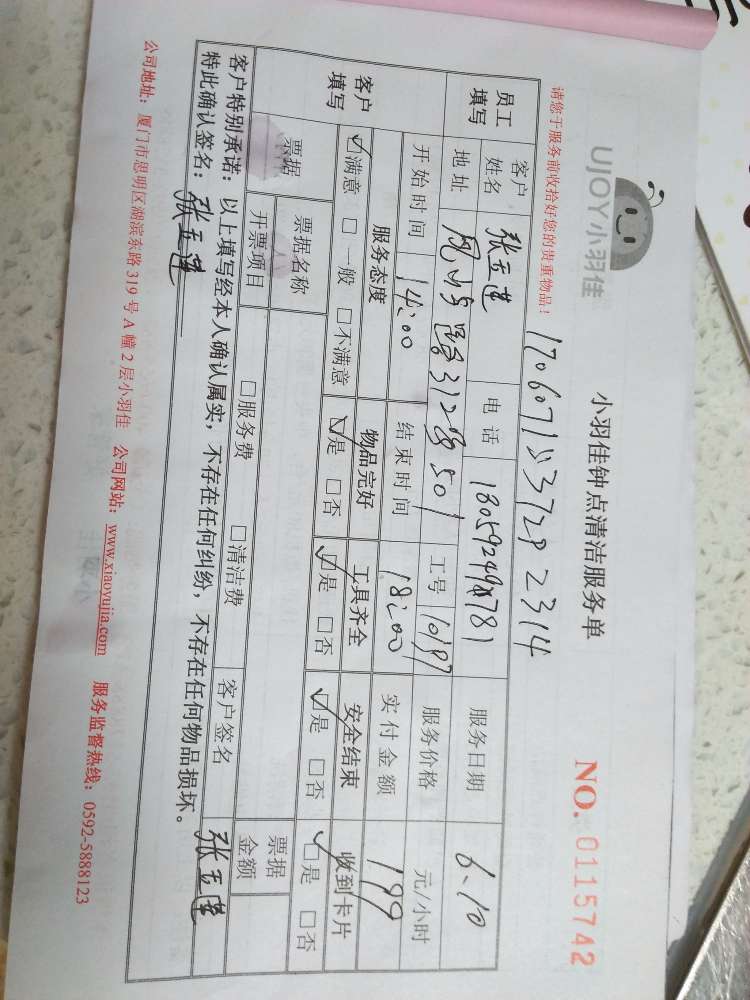 UJOY小羽佳
小羽佳钟点清洁服务单
NO. 0115742
请您于服务前收拾好您的贵重物品！
员工填写 客户姓名 张玉莲 电话 服务日期 6.10
地址 312号501 工号 10197 服务价格 元/小时
开始时间 14:00 结束时间 18:00 实付金额 199
客户填写 服务态度 物品完好 工具齐全 安全结束 收到卡片
☑满意 □一般 □不满意 ☑是 □否 ☑是 □否 ☑是 □否 ☑是 □否
票据 票据名称 票据金额
开票项目 □服务费 □清洁费 客户签名 张玉莲
客户特别承诺：以上填写经本人确认属实，不存在任何纠纷，不存在任何物品损坏。
特此确认签名：张玉莲
公司地址：厦门市思明区湖滨东路319号A幢2层小羽佳 公司网站：www.xiaoyujia.com 服务监督热线：0592-5888123